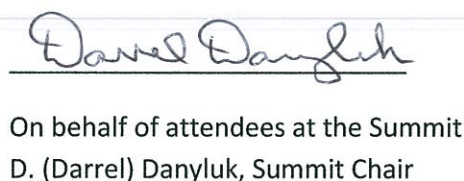 Darrel Danyluk
On behalf of attendees at the Summit
D. (Darrel) Danyluk, Summit Chair